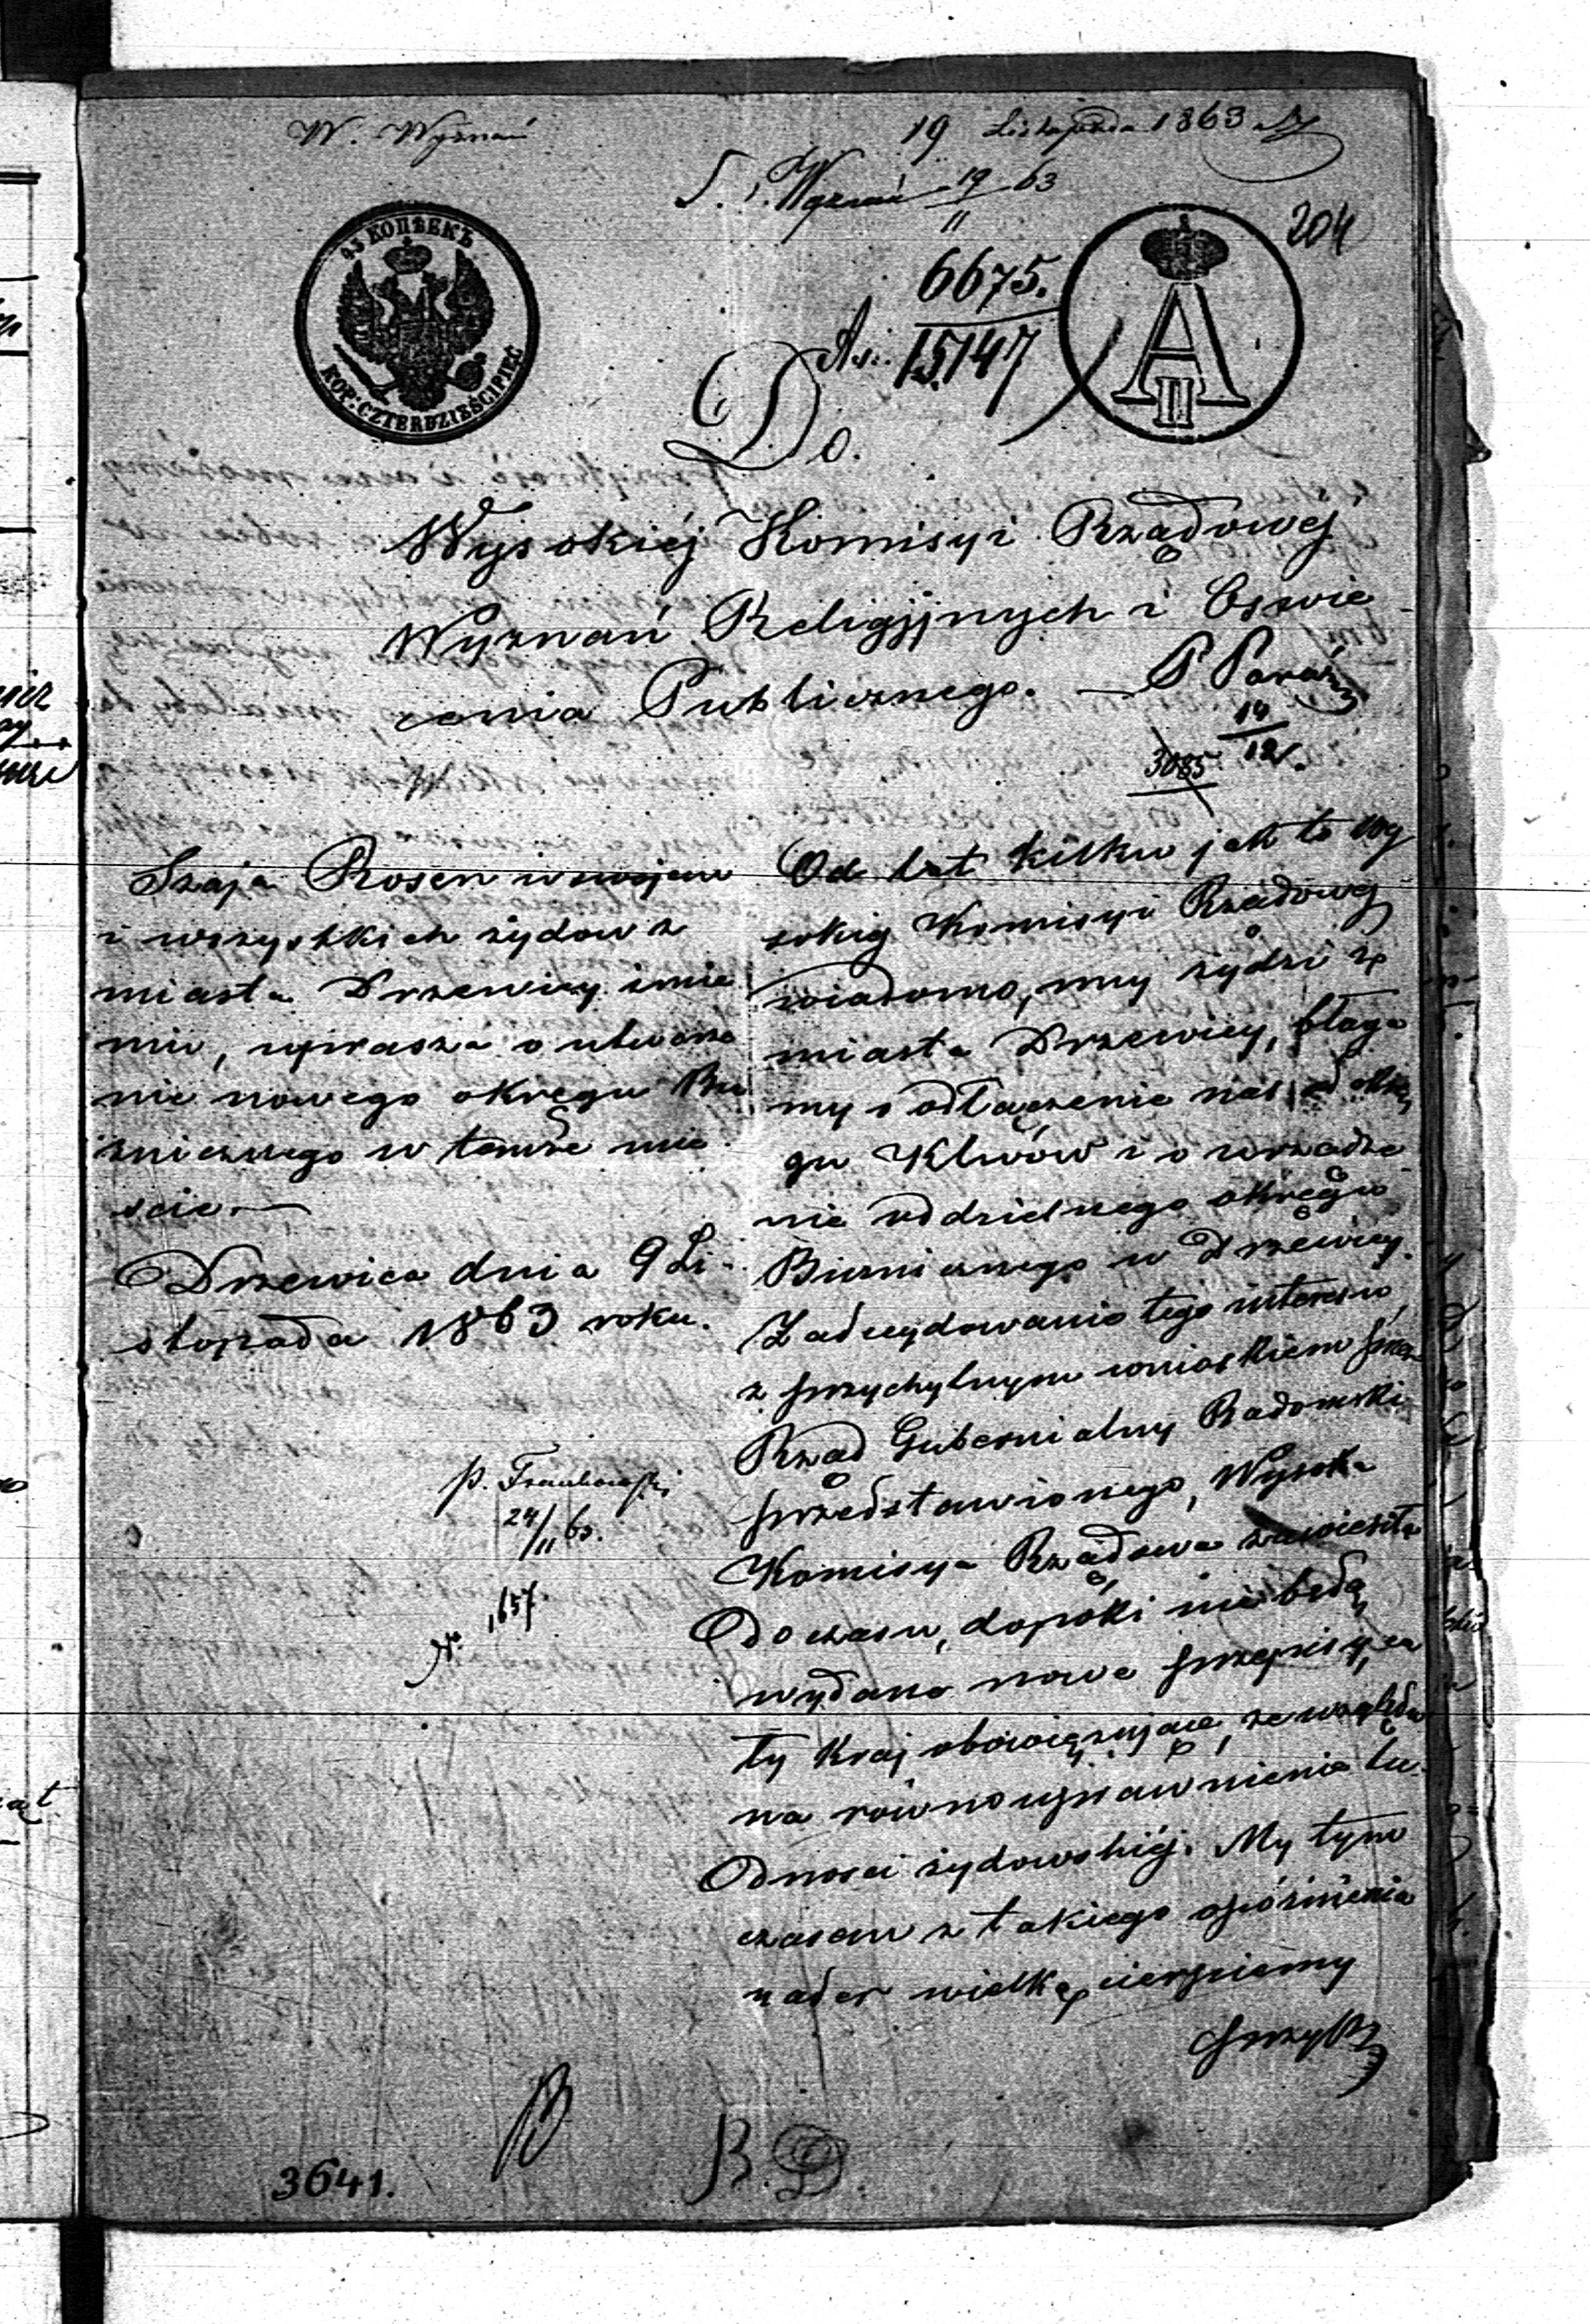 W. Wyznań
19 Listopada 1863
Wyznań 19/11 63
204
45 КОПѢЕКЪ
KOP: CZTERDZIEŚCI PIĘĆ
A II
6675.
15147
Do.
Wysokiéj Komisyi Rządowéj
Wyznań Religijnych i Oswie
cenia Publicznego.
14
12
3085
Szaja Rosen w swojem
i wszystkich żydow z
miasta Drzewicy imie
niu, uprasza o utworze
nie nowego okregu Bu
zniczego w temże mie
scie.
Drzewica dnia 9 Li-
stopada 1863 roku.
p.
24/11 63.
1657.
Od lat kilku jak to wy
sokiej Komisyi Rządowej
wiadomo, my żydzi z
miasta Drzewicy, błaga
my o odłączenie nas od okrę
gu Klwów i o urządze
nie oddzielnego okręgu
Buzniczego w Drzewicy.
Zadecydowanie tego interesu,
z przychylnym wnioskiem przez
Rząd Gubernialny Radomski
przedstawionego, Wysoka
Komisya Rządowa zawiesiła
do czasu, dopóki nie będą
wydane nowe przepisy, ca
ły kraj obowięzujące, ze względu
na równouprawnienie lu-
dnosci żydowskiéj. My tym
czasem z takiego opóźnienia
nader wielką cierpiemy
przykr
B
B. D.
3641.